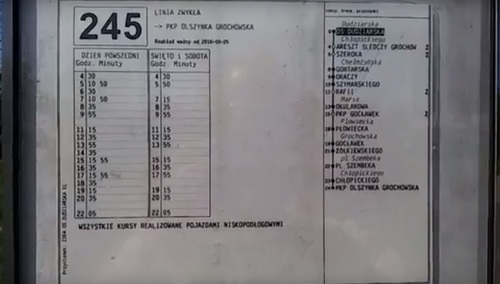 245
LINIA ZWYKŁA
-> PKP OLSZYNKA GROCHOWSKA
Rozkład ważny od 2016-10-25
DZIEŃ POWSZEDNI
Godz. Minuty
4 30
5 10 50
6 30
7 10 50
8 35
9 55
11 15
12 35
13 55
14 35
15 15 55
16 35
17 15 55
18 35
19 15
20 35
22 05
ŚWIĘTO i SOBOTA
Godz. Minuty
4 30
5 50
7 15
8 35
9 55
11 15
12 35
13 55
15 15
16 35
17 55
19 15
20 35
22 05
WSZYSTKIE KURSY REALIZOWANE POJAZDAMI NISKOPODŁOGOWYMI
Dudziarska
OS.DUDZIARSKA
Chłopickiego
ARESZT ŚLEDCZY GROCHÓW Z
SZEROKA Z
Chełmżyńska
GONTARSKA
ORACZY
SZYMAŃSKIEGO
RAFII Z
Marsa
OKULAROWA
PKP GOCŁAWEK Z
Płowiecka
PŁOWIECKA
Grochowska
GOCŁAWEK
ŻÓŁKIEWSKIEGO
pl.Szembeka
PL.SZEMBEKA
Chłopickiego
CHŁOPICKIEGO
PKP OLSZYNKA GROCHOWSKA